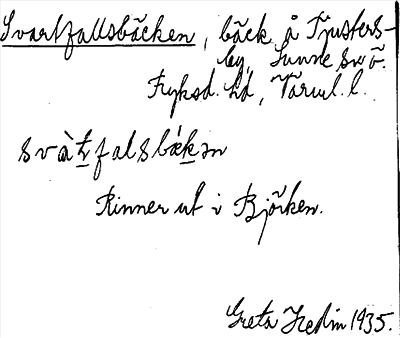 Svartfallsbäcken, bäck å Tjusters-
by, Sunne sn ö.
Fryksd. hd, Värml. l.
svàt̠falsbǽk̠ən
Rinner ut i Björken.
Greta Hedin 1935.